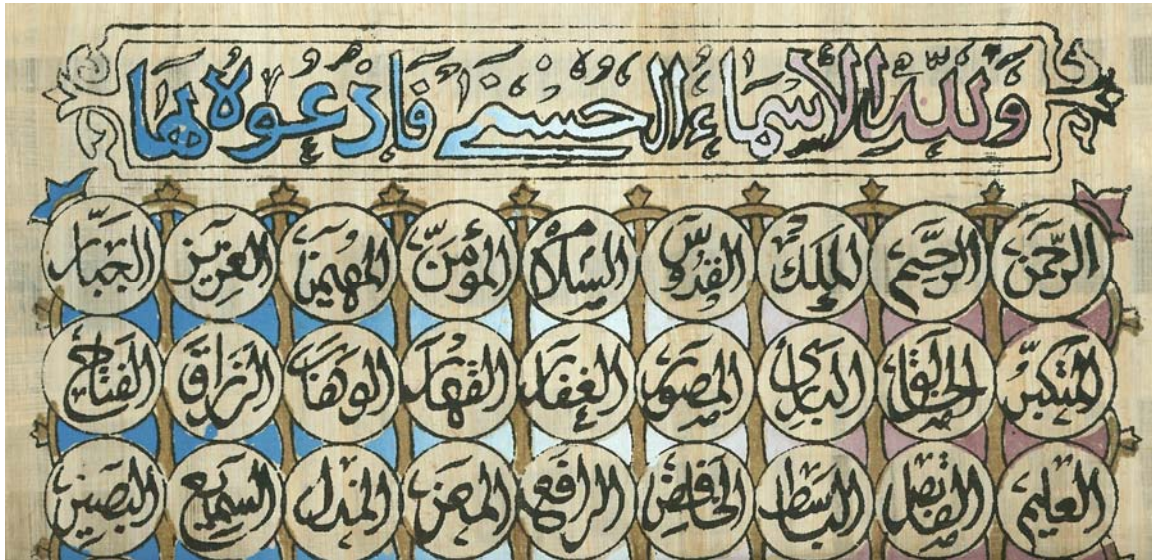 وَلِلَّهِ الْأَسْمَاءُ الْحُسْنَى فَادْعُوهُ بِهَا
الرحمن الرحيم الملك القدوس السلام المؤمن المهيمن العزيز الجبار
المتكبر الخالق البارئ المصور الغفار القهار الوهاب الرزاق الفتاح
العليم القابض الباسط الخافض الرافع المعز المذل السميع البصير